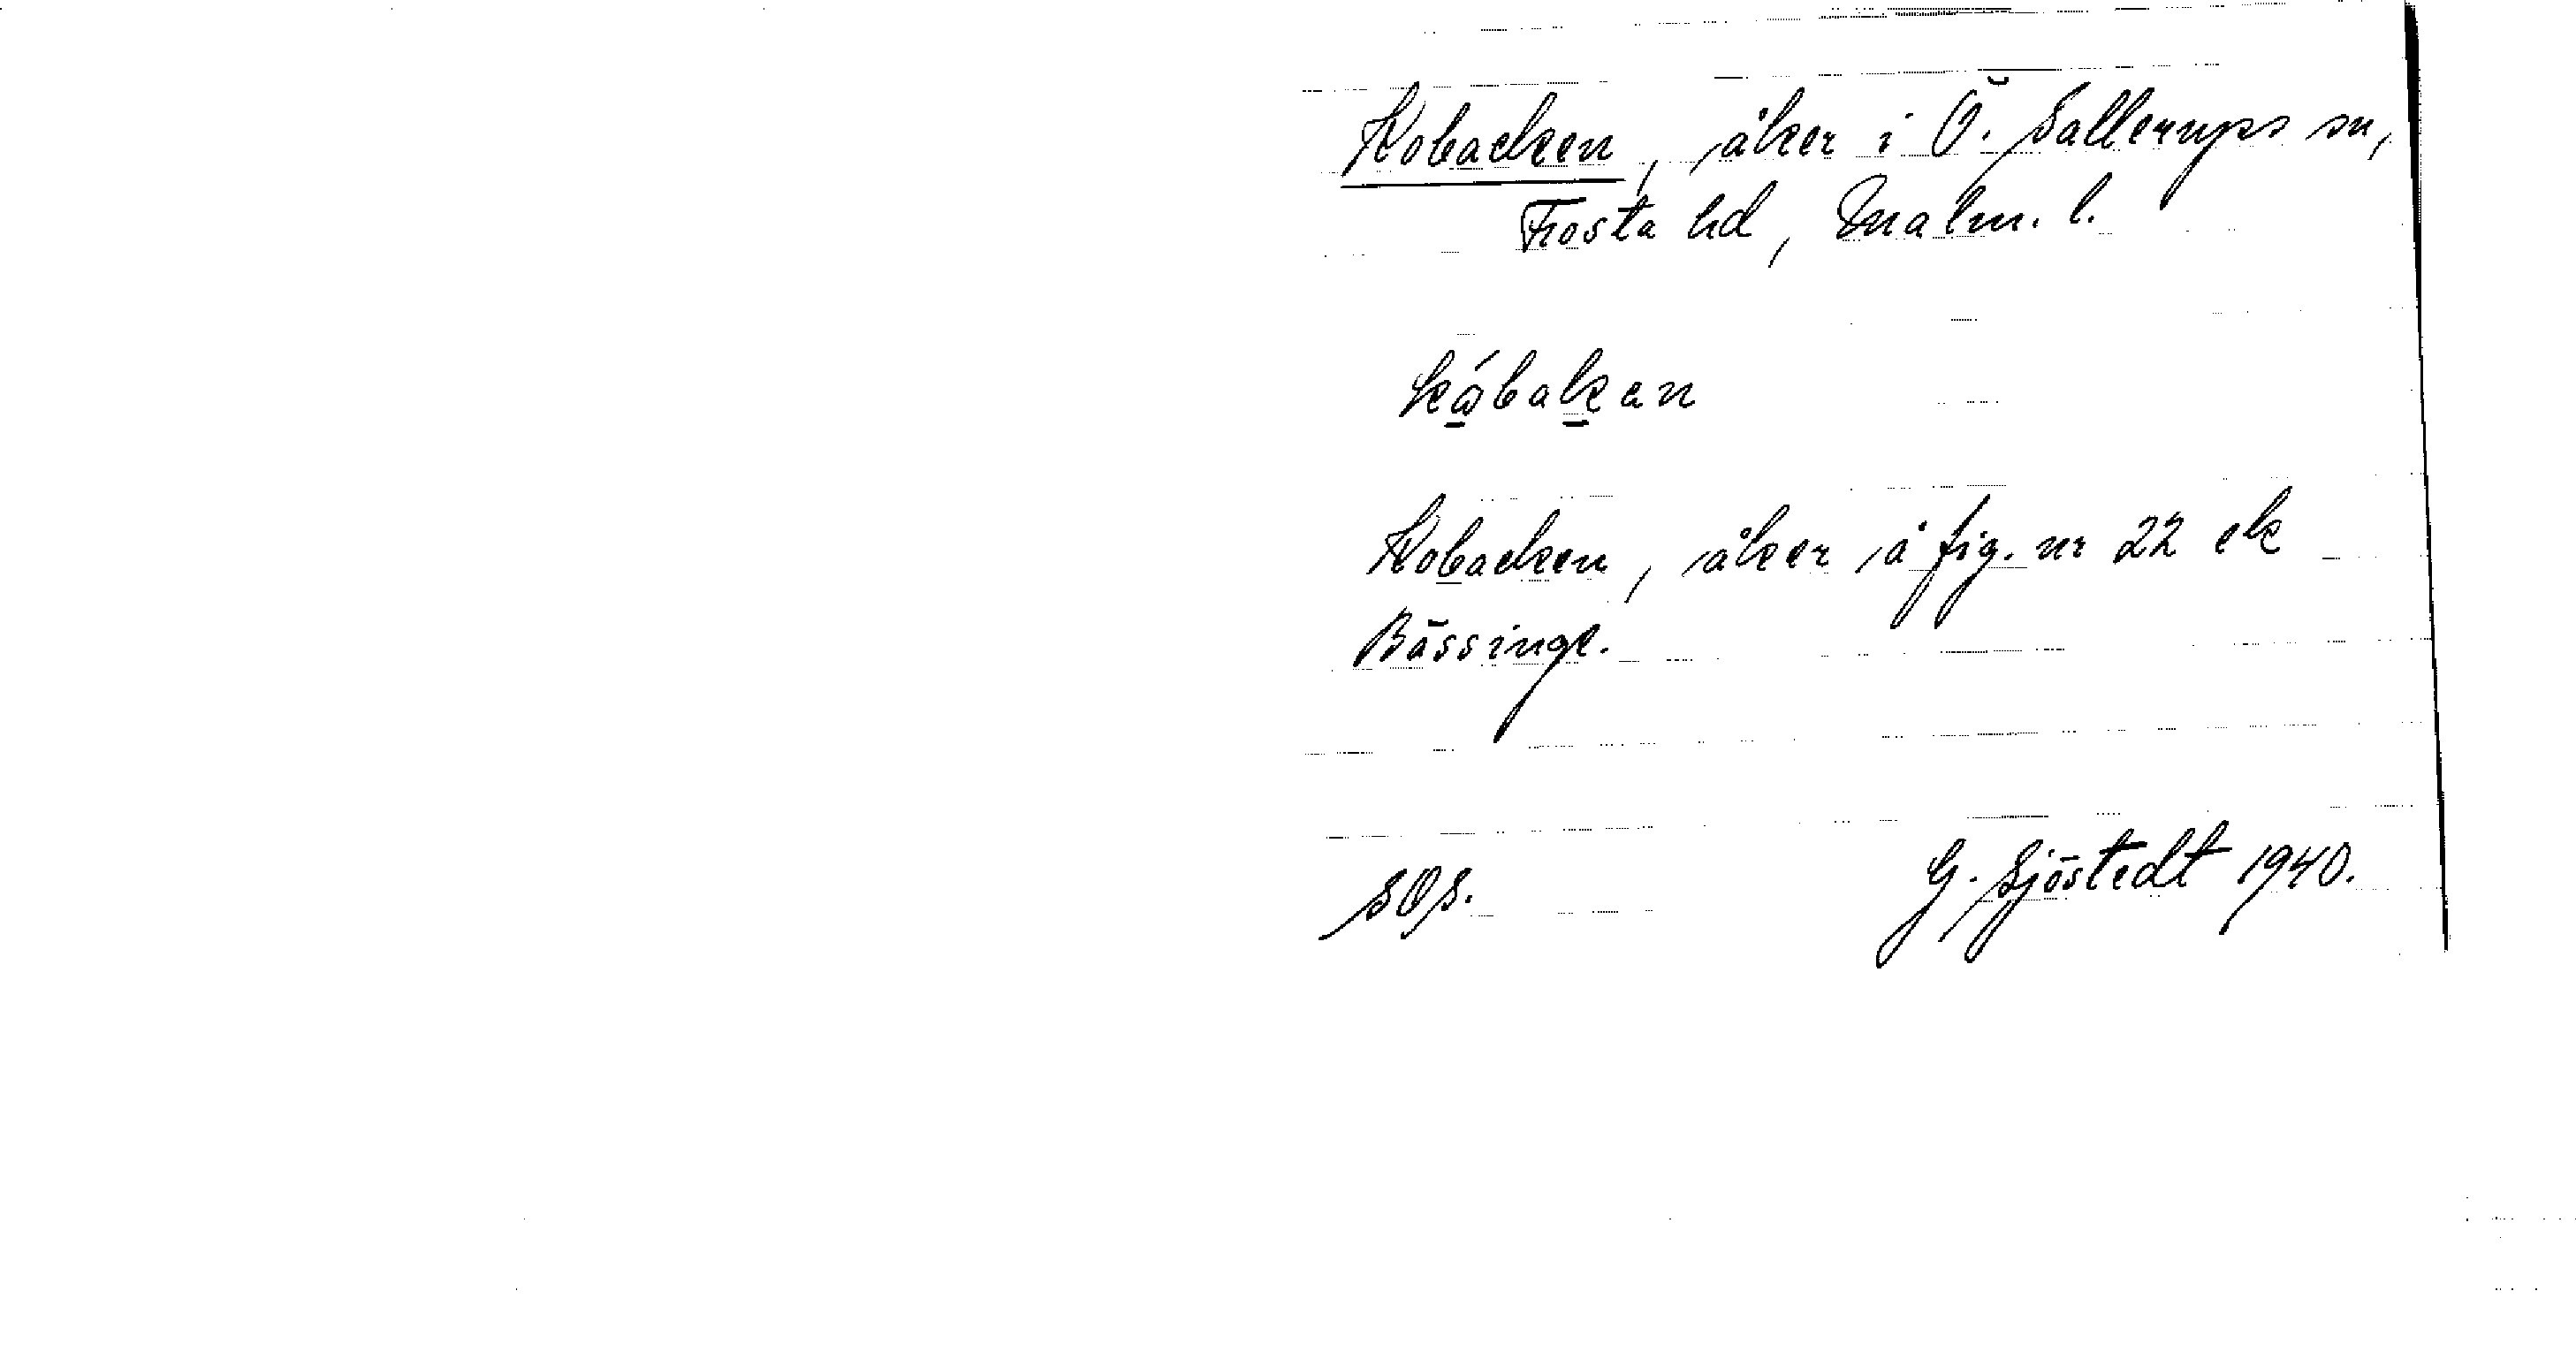 Kobacken, åker i Ö. Sallerups sn,
Frosta hd, Malm. l.
kóbakan
Kobacken, åker å fig. nr 22 ek
Bässinge.
SOS.
G. Sjöstedt 1940.